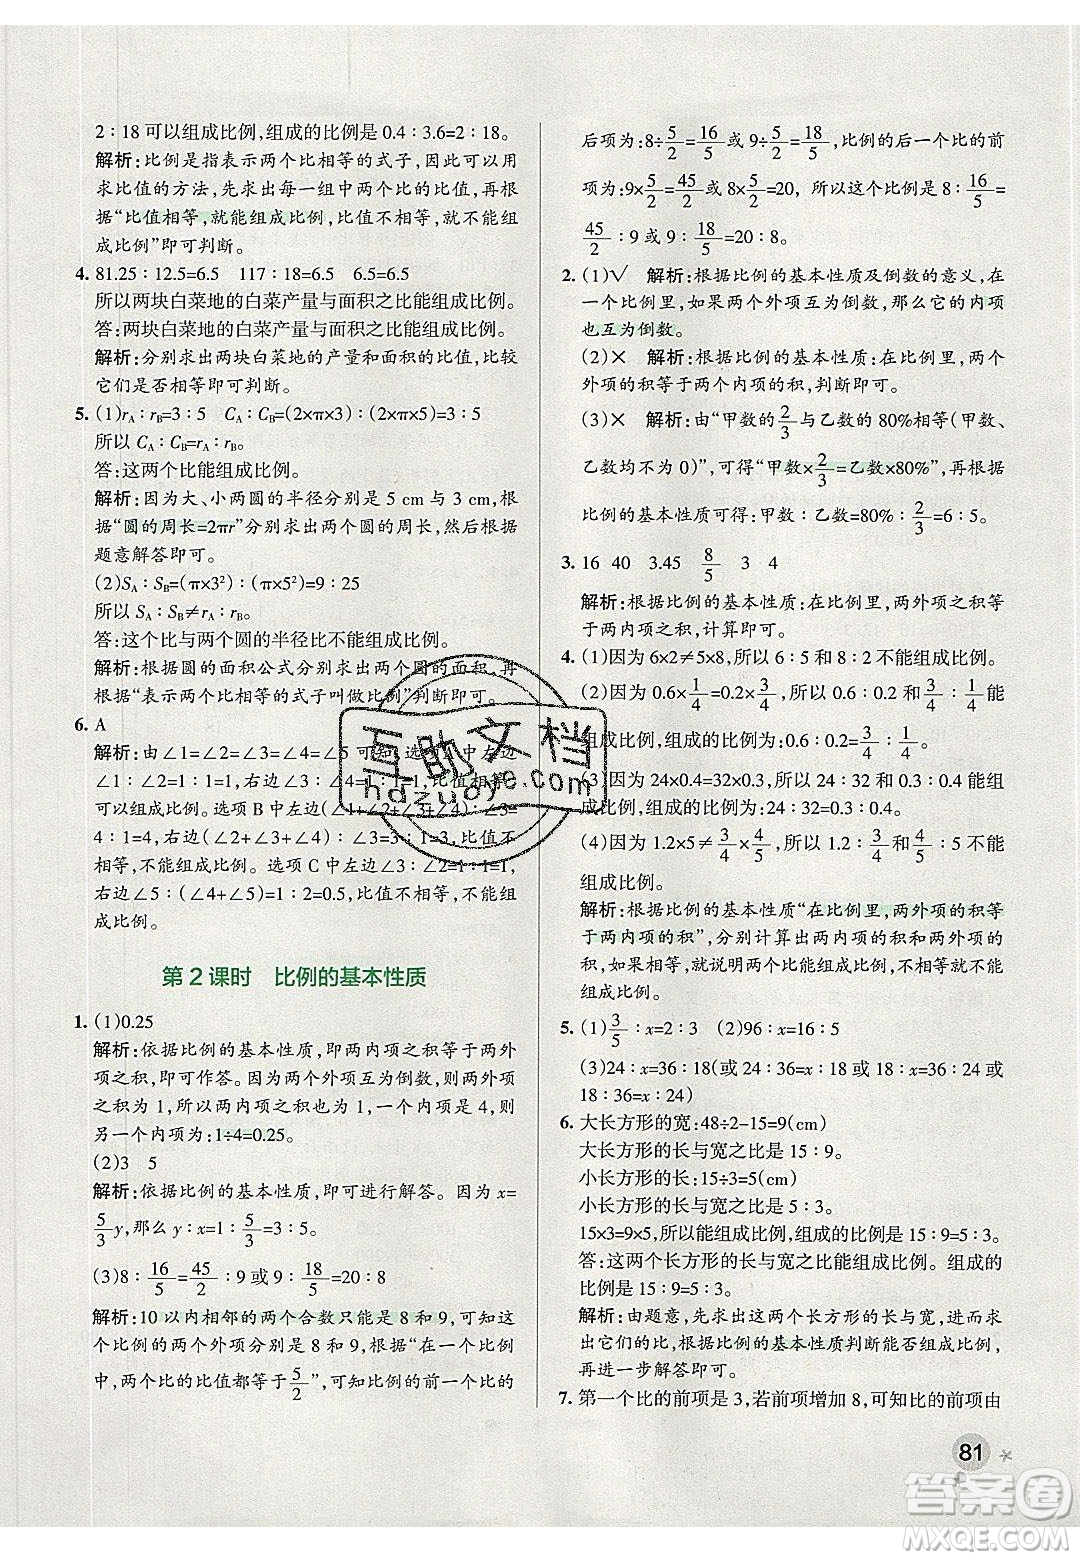 2∶18可以组成比例,组成的比例是0.4∶3.6=2∶18。
解析:比例是指表示两个比相等的式子,因此可以用
求比值的方法,先求出每一组中两个比的比值,再根
据“比值相等,就能组成比例,比值不相等,就不能组
成比例”即可判断。
4. 81.25∶12.5=6.5 117∶18=6.5 6.5=6.5
所以两块白菜地的白菜产量与面积之比能组成比例。
答:两块白菜地的白菜产量与面积之比能组成比例。
解析:分别求出两块白菜地的产量和面积的比值,比较
它们是否相等即可判断。
5. (1)rA∶rB=3∶5 CA∶CB=(2×π×3)∶(2×π×5)=3∶5
所以 CA∶CB=rA∶rB。
答:这两个比能组成比例。
解析:因为大、小两圆的半径分别是 5 cm 与 3 cm,根
据“圆的周长=2πr”分别求出两个圆的周长,然后根据
题意解答即可。
(2)SA∶SB=(π×3²)∶(π×5²)=9∶25
所以 SA∶SB≠rA∶rB。
答:这个比与两个圆的半径比不能组成比例。
解析:根据圆的面积公式分别求出两个圆的面积,再
根据“表示两个比相等的式子叫做比例”判断即可。
6. A
解析:由∠1=∠2=∠3=∠4=∠5 可知,选项A中左边
∠1∶∠2=1∶1=1,右边∠3∶ 1∶1=1,比值相等,
可以组成比例。选项 B 中左边(∠1+∠2+∠3+∠4)∶∠5=
4∶1=4,右边(∠2+∠3+∠4)∶∠3=3∶1=3,比值不
相等,不能组成比例。选项 C 中左边∠3∶∠2=1∶1=1,
右边∠5∶(∠4+∠5)=1∶2=0.5,比值不相等,不能组
成比例。
第 2 课时 比例的基本性质
1. (1)0.25
解析:依据比例的基本性质,即两内项之积等于两外
项之积,即可作答。因为两个外项互为倒数,则两外项
之积为 1,所以两内项之积也为 1,一个内项是 4,则
另一个内项为:1÷4=0.25。
(2)3 5
解析:依据比例的基本性质,即可进行解答。因为 x=
5/3 y,那么 y∶x=1∶5/3=3∶5。
(3)8∶16/5=45/2∶9 或 9∶18/5=20∶8
解析:10 以内相邻的两个合数只能是 8 和 9,可知这
个比例的两个外项分别是 8 和 9,再根据“一个比例
中,两个比的比值都等于5/2”,可知比例的前一个比的
后项为:8÷5/2=16/5或 9÷5/2=18/5,比例的后一个比的前
项为:9×5/2=45/2或 8×5/2=20, 所以这个比例是 8∶16/5=
45/2∶9 或 9∶18/5=20∶8。
2. (1)✓ 解析:根据比例的基本性质及倒数的意义,在
一个比例里,如果两个外项互为倒数,那么它的内项
也互为倒数。
(2)× 解析:根据比例的基本性质:在比例里,两个
外项的积等于两个内项的积,所以本题错误。
(3)× 解析:由“甲数的2/3与乙数的 80%相等(甲数、
乙数均不为 0)”,可得“甲数×2/3=乙数×80%”,再根据
比例的基本性质可得:甲数∶乙数=80%∶2/3=6∶5。
3. 16 40 3.45 8/5 3 4
解析:根据比例的基本性质:在比例里,两外项之积等
于两内项之积,计算即可。
4. (1)因为 6×2≠5×8,所以 6∶5 和 8∶2 不能组成比例。
(2)因为 0.6×1/4=0.2×3/4,所以 0.6∶0.2 和3/4∶1/4能
组成比例,组成的比例为:0.6∶0.2=3/4∶1/4。
(3)因为 24×0.4=32×0.3,所以 24∶32 和 0.3∶0.4 能组
成比例,组成的比例为:24∶32=0.3∶0.4。
(4)因为 1.2×5≠3/4×4/5,所以 1.2∶3/4和4/5∶5 不能
组成比例。
解析:根据比例的基本性质“在比例里,两外项的积等
于两内项的积”,分别计算出两内项的积和两外项的
积,若相等,就说明两个比能组成比例,不相等,就不能
组成比例。
5. (1)3/5∶x=2∶3 (2)96∶x=16∶5
(3)24∶x=36∶18(或 24∶18=36∶x或 x∶36=18∶24或
18∶36=x∶24)
6. 大长方形的宽:48÷2-15=9(cm)
大长方形的长与宽之比是 15∶9。
小长方形的长:15÷3=5(cm)
小长方形的长与宽之比是 5∶3。
15×3=9×5,所以能组成比例,组成的比例是 15∶9=5∶3。
答:这两个长方形的长与宽之比能组成比例。组成的
比例是 15∶9=5∶3。
解析:由题意,先求出这两个长方形的长与宽,进而求
出它们的比,根据比例的基本性质判断能否组成比例,
再进一步解答即可。
7. 第一个比的前项是 3,若前项增加 8,可知比的前项由
81
互助文档
hdzuoye.com
答案圈
MXQE.COM